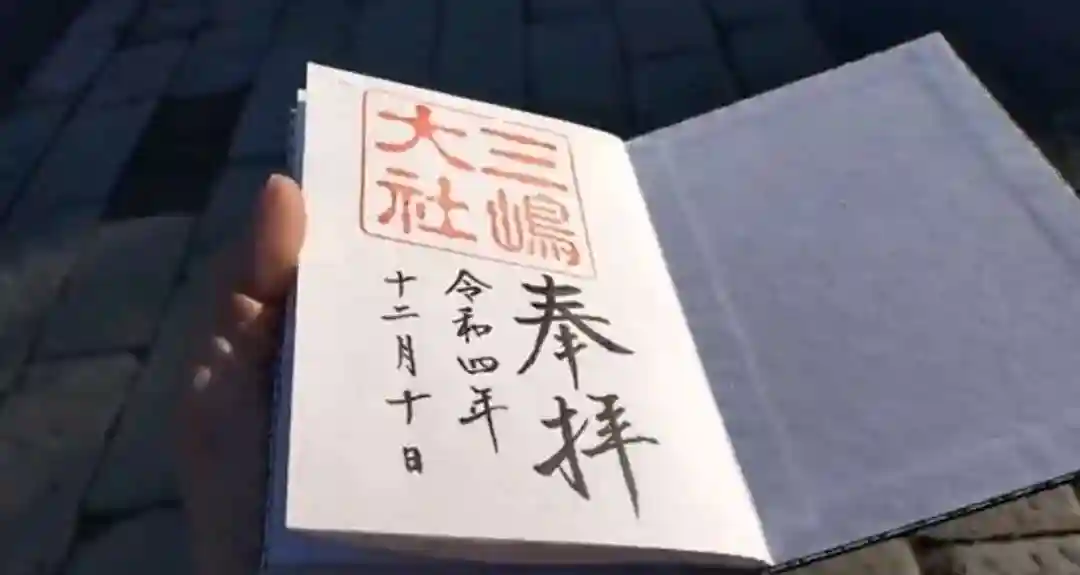 三嶋
大社
奉拝
令和四年
十二月十日